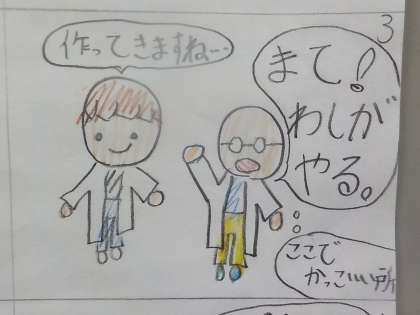 3
作ってきますね…
まて!
わしが
やる。
ここで
かっこいい所